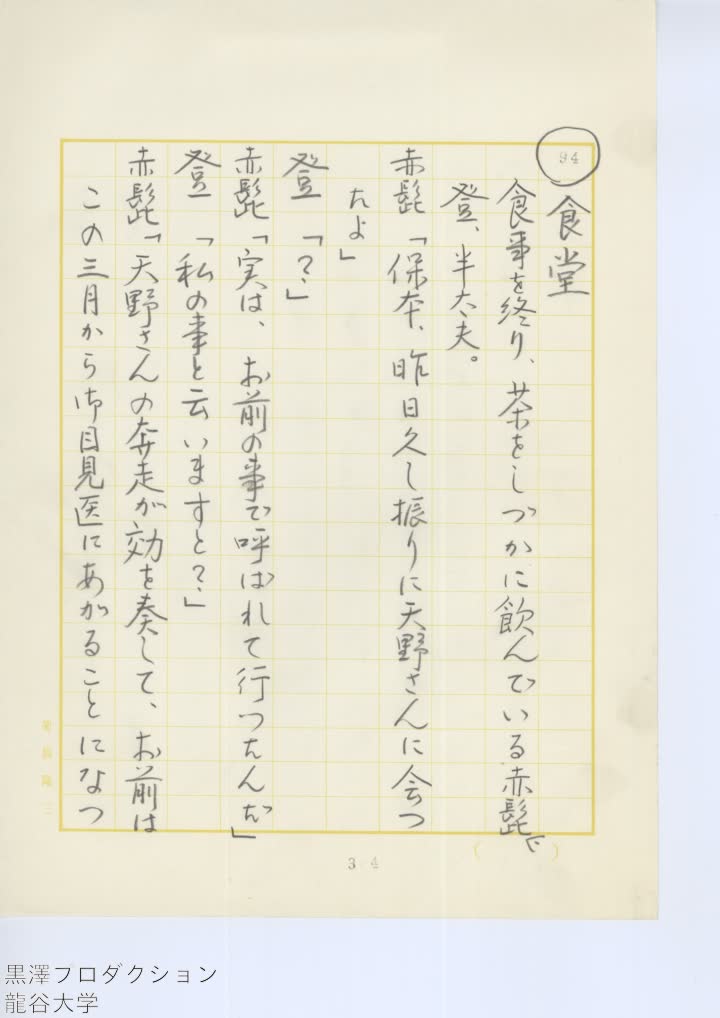 94
食堂
食事を終り、茶をしづかに飲んでいる赤髭と
登、半太夫。
赤髭「保本、昨日久し振りに天野さんに会つ
たよ」
登「？」
赤髭「実は、お前の事で呼ばれて行つたんだ」
登「私の事と云いますと？」
赤髭「天野さんの奔走が効を奏して、お前は
この三月から御目見医にあがることになつ
34
黒澤プロダクション
龍谷大学